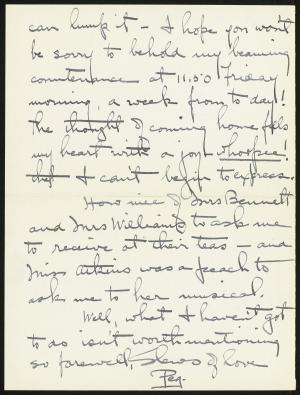 can lump it – I hope you won't
be sorry to behold my beaming
countenance at 11.50 Friday
morning, a week from to-day!
The thought of coming home fills
my heart with a joy – whoopee!
that I can't begin to express.
How nice of Mrs Bennett
and Mrs Williams to ask me
to receive at their teas – and
Miss Atkins was a peach to
ask me to her musical.
Well, what I haven't got
to do isn't worth mentioning
so farewell, Slews of love
Peg.